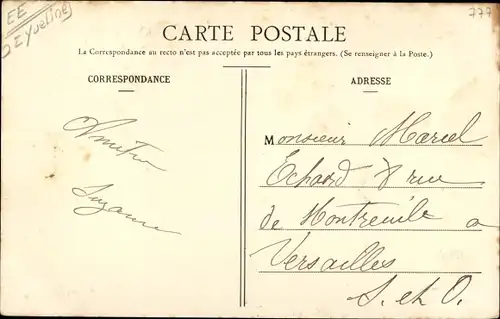 EE
777
CARTE POSTALE
La Correspondance au recto n'est pas acceptée par tous les pays étrangers. (Se renseigner à la Poste.)
CORRESPONDANCE
ADRESSE
Suzanne
Monsieur Marcel
Echard 8 rue
de Montreuil a
Versailles
S. et O.